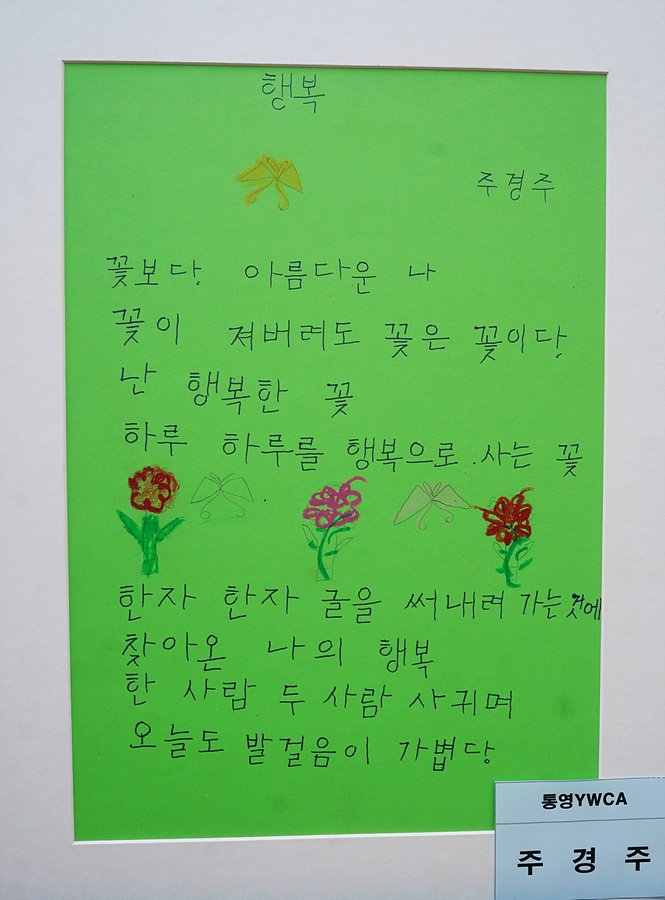 행복
주경주
꽃보다 아름다운 나
꽃이 져버려도 꽃은 꽃이다.
난 행복한 꽃
하루 하루를 행복으로 사는 꽃
한자 한자 굴을 써내려 가는것에
찾아온 나의 행복
한 사람 두 사람 사귀며
오늘도 발걸음이 가볍당
통영YWCA
주 경 주